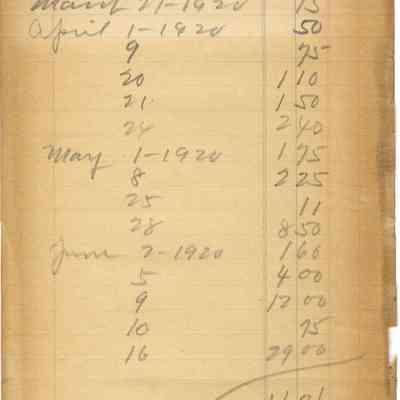 March 21-1920 75
April 1-1920 50
9 75
20 1 10
21 1 50
24 2 40
May 1-1920 1 75
8 2 25
25 11
28 8 50
June 2-1920 1 60
5 4 00
9 12 00
10 75
16 29 00